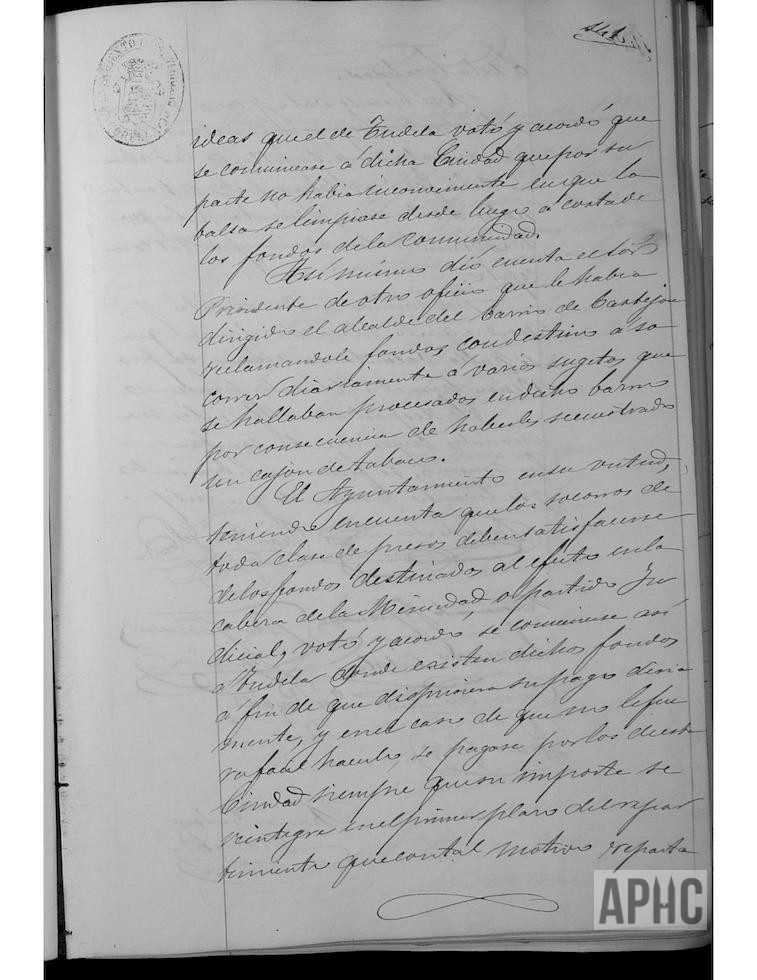 ideas que el de Tudela votó y acordó que
se comunicase á dicha Ciudad que por su
parte no habia inconveniente en que la
balsa se limpiase desde luego á costa de
los fondos de la comunidad.
Asi mismo dió cuenta el Sor
Presidente de otro oficio que le habia
dirigido el alcalde del barrio de Castejon
reclamandole fondos con destino a so
correr diariamente a varios sugetos que
se hallaban procesados en dicho barrio
por consecuencia de haberles secuestrado
un cajon de tabaco.
El Ayuntamiento en su virtud,
teniendo en cuenta que los socorros de
toda clase de presos deben satisfacerse
de los fondos destinados al efecto en la
cabeza de la Merindad, o partido Ju
dicial, votó y acordó, se comunicase así
á Tudela donde existen dichos fondos
á fin de que dispusiera su pago diaria
mente, y en el caso de que no le fue
ra facil hacerlo, se pagase por los de esta
Ciudad siempre que su importe se
reintegre en el primer plazo del repar
timiento que con tal motivo reparta
APHC